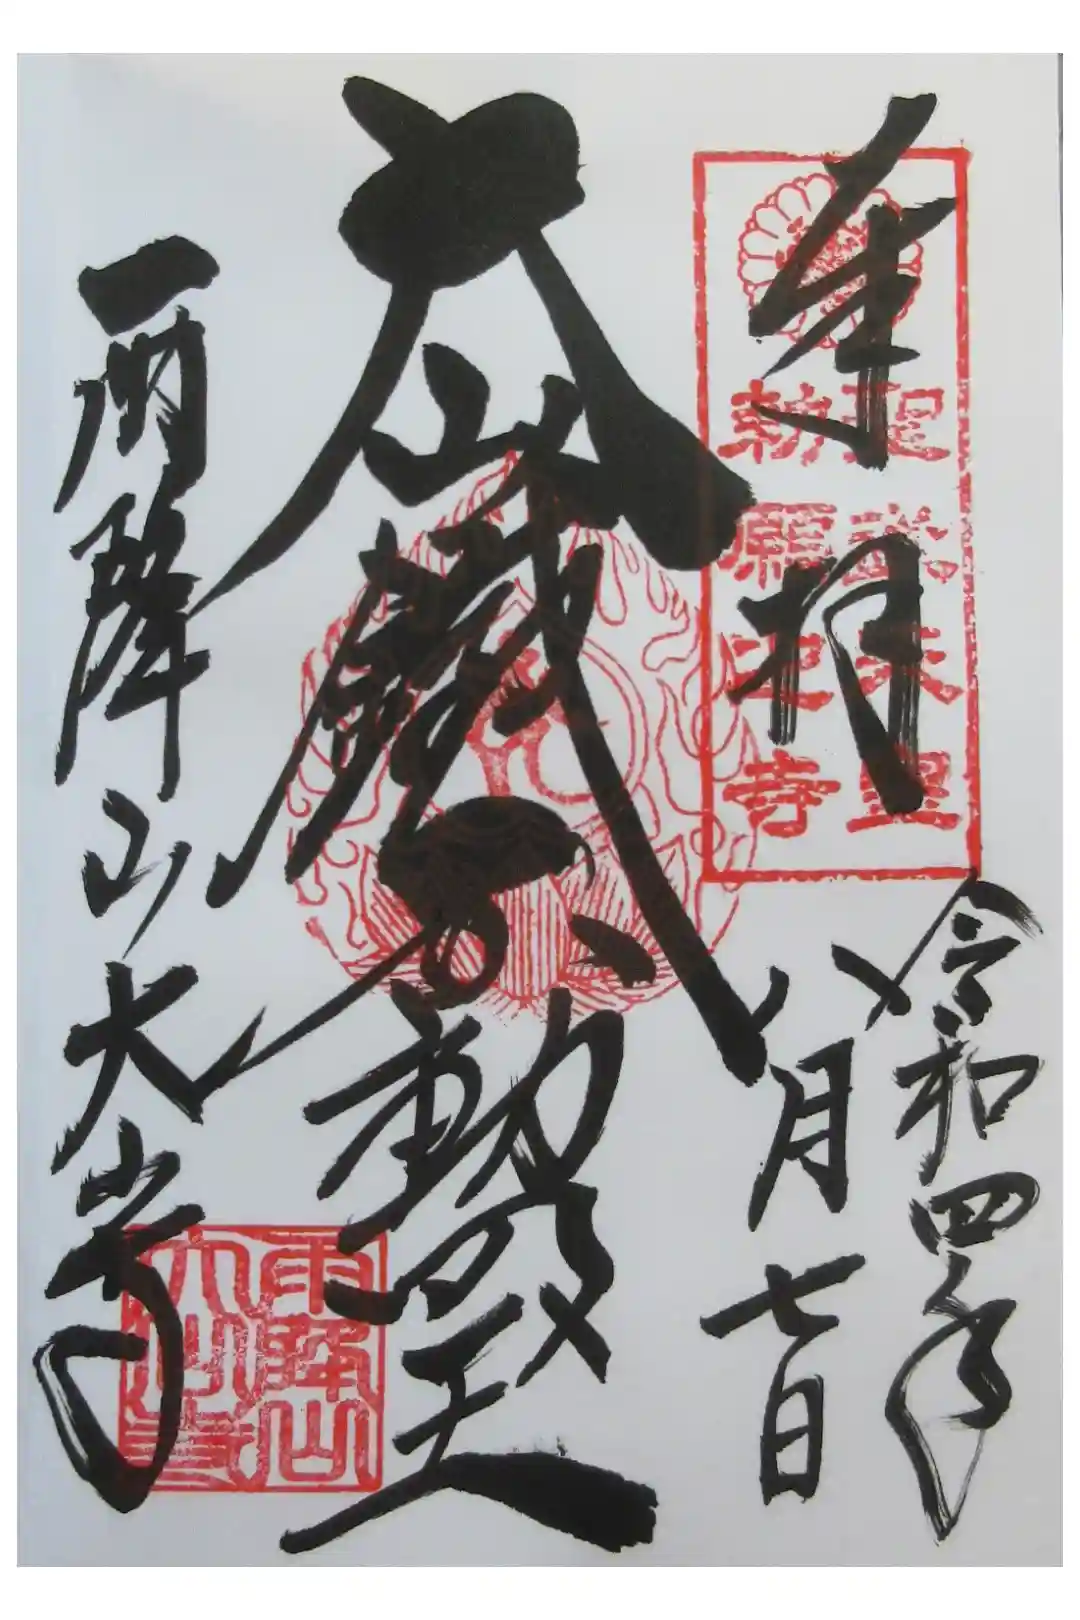 奉拝
聖武天皇
勅願之寺
令和四年
八月七日
大山鐵不動殿
雨降山大山寺
雨降山
大山寺